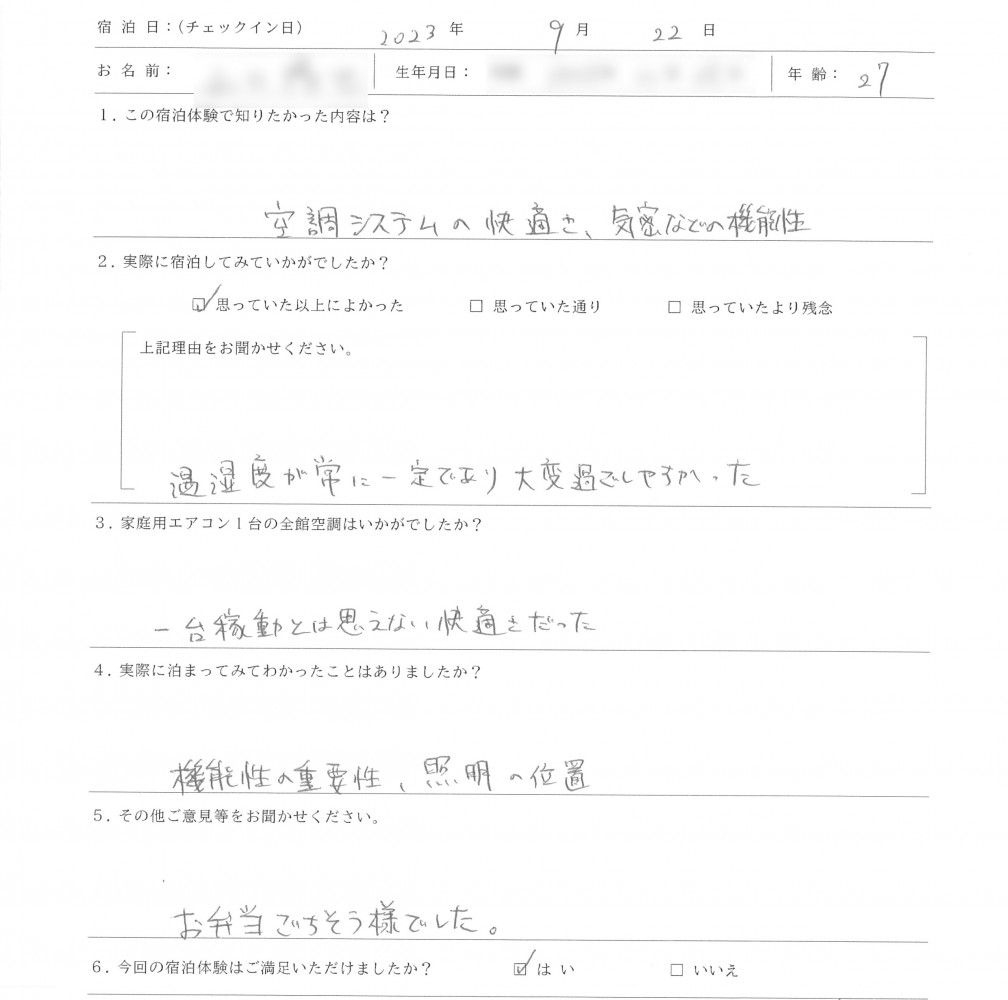 宿 泊 日：（チェックイン日） 2023 年 9 月 22 日
お 名 前： 生年月日： 年 齢： 27
1．この宿泊体験で知りたかった内容は？
空調システムの快適さ、気密などの機能性
2．実際に宿泊してみていかがでしたか？
☑ 思っていた以上によかった □ 思っていた通り □ 思っていたより残念
上記理由をお聞かせください。
温湿度が常に一定であり大変過ごしやすかった
3．家庭用エアコン1台の全館空調はいかがでしたか？
一台稼動とは思えない快適さだった
4．実際に泊まってみてわかったことはありましたか？
機能性の重要性、照明の位置
5．その他ご意見等をお聞かせください。
お弁当ごちそう様でした。
6．今回の宿泊体験はご満足いただけましたか？ ☑ は い □ いいえ